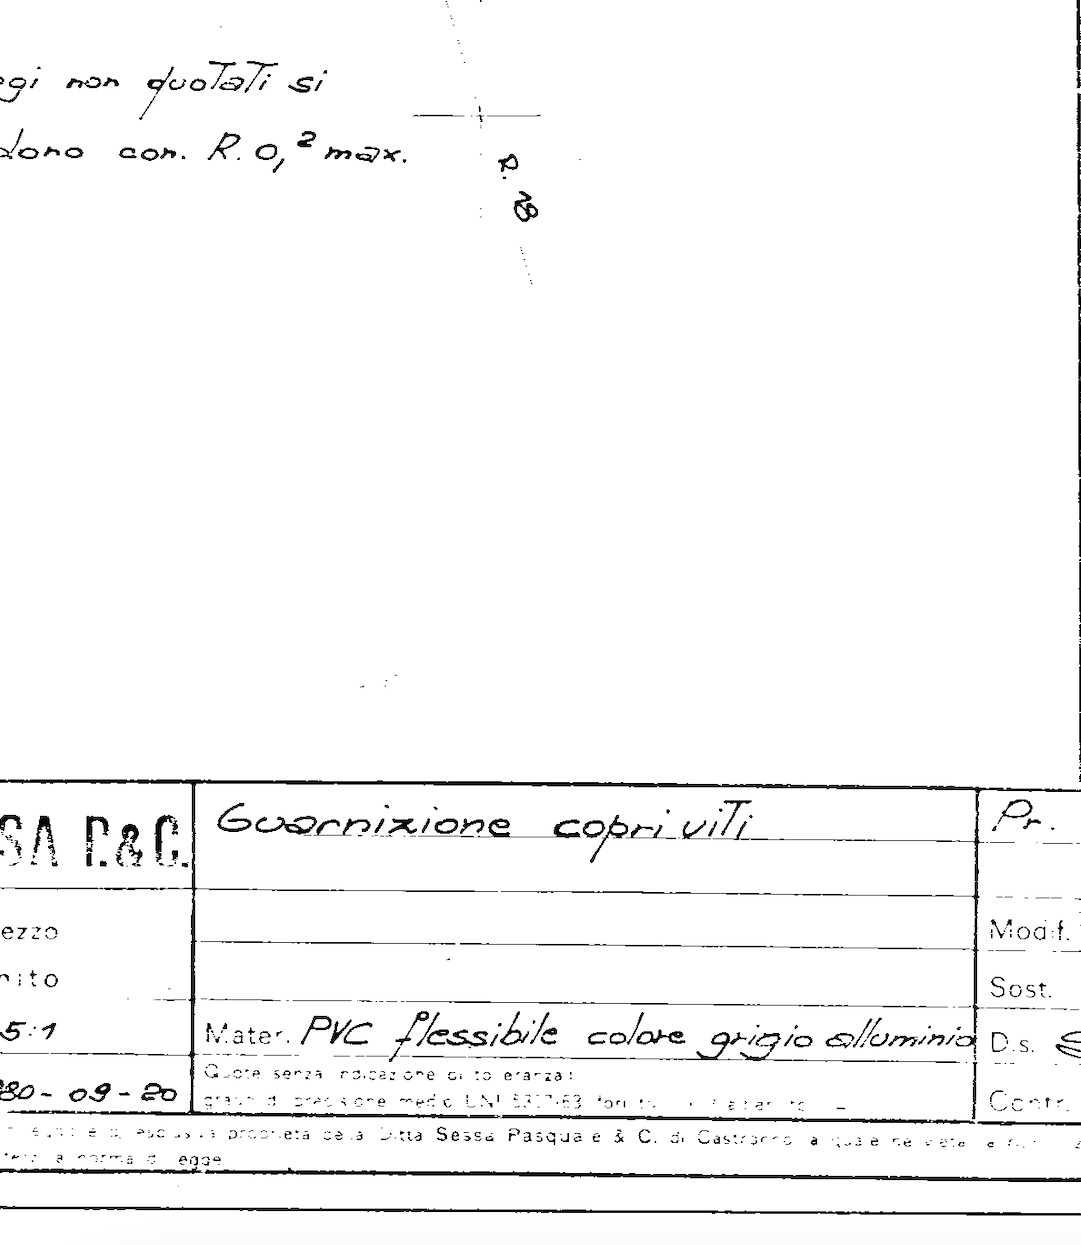 gi non quotati si
dono con. R. 0,2 max.
R. 18
SA P.&C.
Guarnizione copri viti
Pr.
ezzo
Modif.
nito
Sost.
5:1
Mater. PVC flessibile colore grigio alluminio
D.s.
Quote senza indicazione di tolleranza:
80-09-20
grado di precisione medio UNI 5307-63
Contr.
esclusiva proprietà della Ditta Sessa Pasquale & C. di la quale ne vieta
a norma di legge